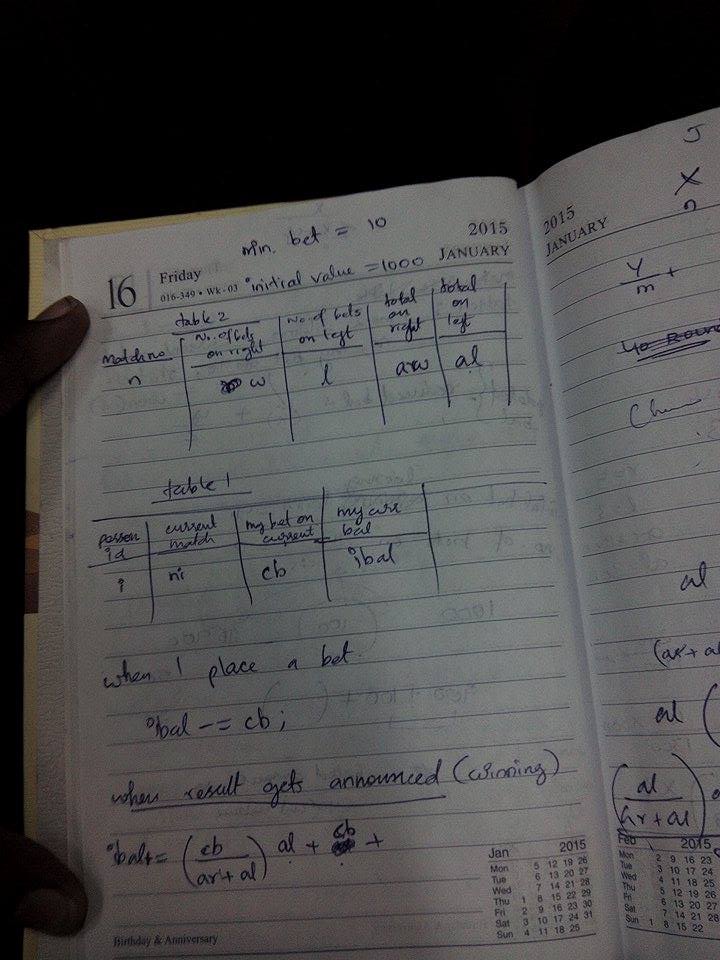 min. bet = 10
2015
JANUARY
16 Friday
016-349 • Wk-03
initial value = 1000
table 2
Match no
No. of bets on right
No. of bets on left
total on right
total on left
n
w
l
al
table 1
person id
current match
my bet on current
my curr bal
i
ni
cb
ibal
when I place a bet.
ibal -= cb;
when result gets announced (winning)
ibal+= (cb/ar+al) al + cb +
Jan 2015
Mon 5 12 19 26
Tue 6 13 20 27
Wed 7 14 21 28
Thu 1 8 15 22 29
Fri 2 9 16 23 30
Sat 3 10 17 24 31
Sun 4 11 18 25
Birthday & Anniversary
2015
JANUARY
J
X
n
Y/m +
al
(ar+al
al (
(al/ar+al)
Feb 2015
Mon 2 9 16 23
Tue 3 10 17 24
Wed 4 11 18 25
Thu 5 12 19 26
Fri 6 13 20 27
Sat 7 14 21 28
Sun 1 8 15 22